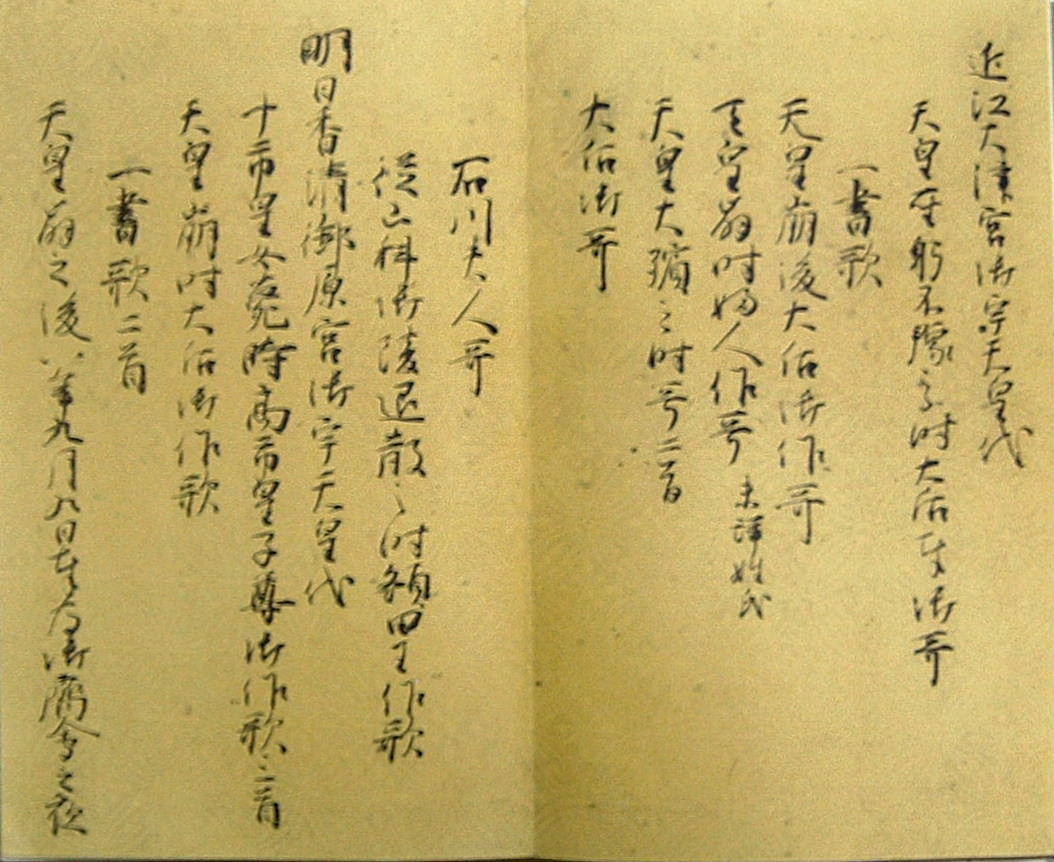 近江大津宮御宇天皇代
天皇聖躬不豫之時大后奉御哥
一書歌
天皇崩後大后御作哥
天皇崩時婦人作哥 未詳姓氏
天皇大殯之時哥二首
大后御哥
石川夫人哥
従山科御陵退散之時額田王作歌
明日香清御原宮御宇天皇代
十市皇女薨時高市皇子尊御作歌三首
天皇崩時大后御作歌
一書歌二首
天皇崩之後八年九月九日奉為御齋會之夜